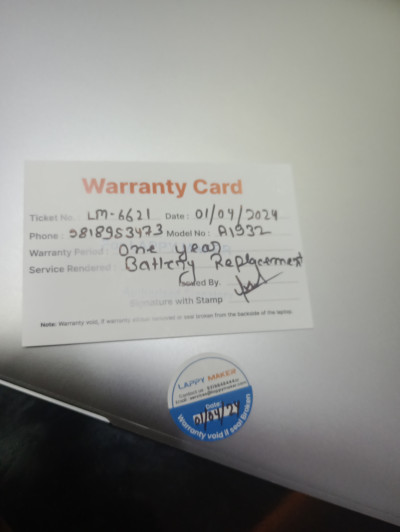 Warranty Card
Ticket No : LM-6621 Date : 01/04/2024
Phone : 9818953473 Model No : A1932
Warranty Period : One year
Service Rendered : Battery Replacement
Issued By.
Signature with Stamp
Note: Warranty void, if warranty sticker removed or seal broken from the backside of the laptop.
LAPPY MAKER
Date:
01/04/24
Warranty void if seal Broken